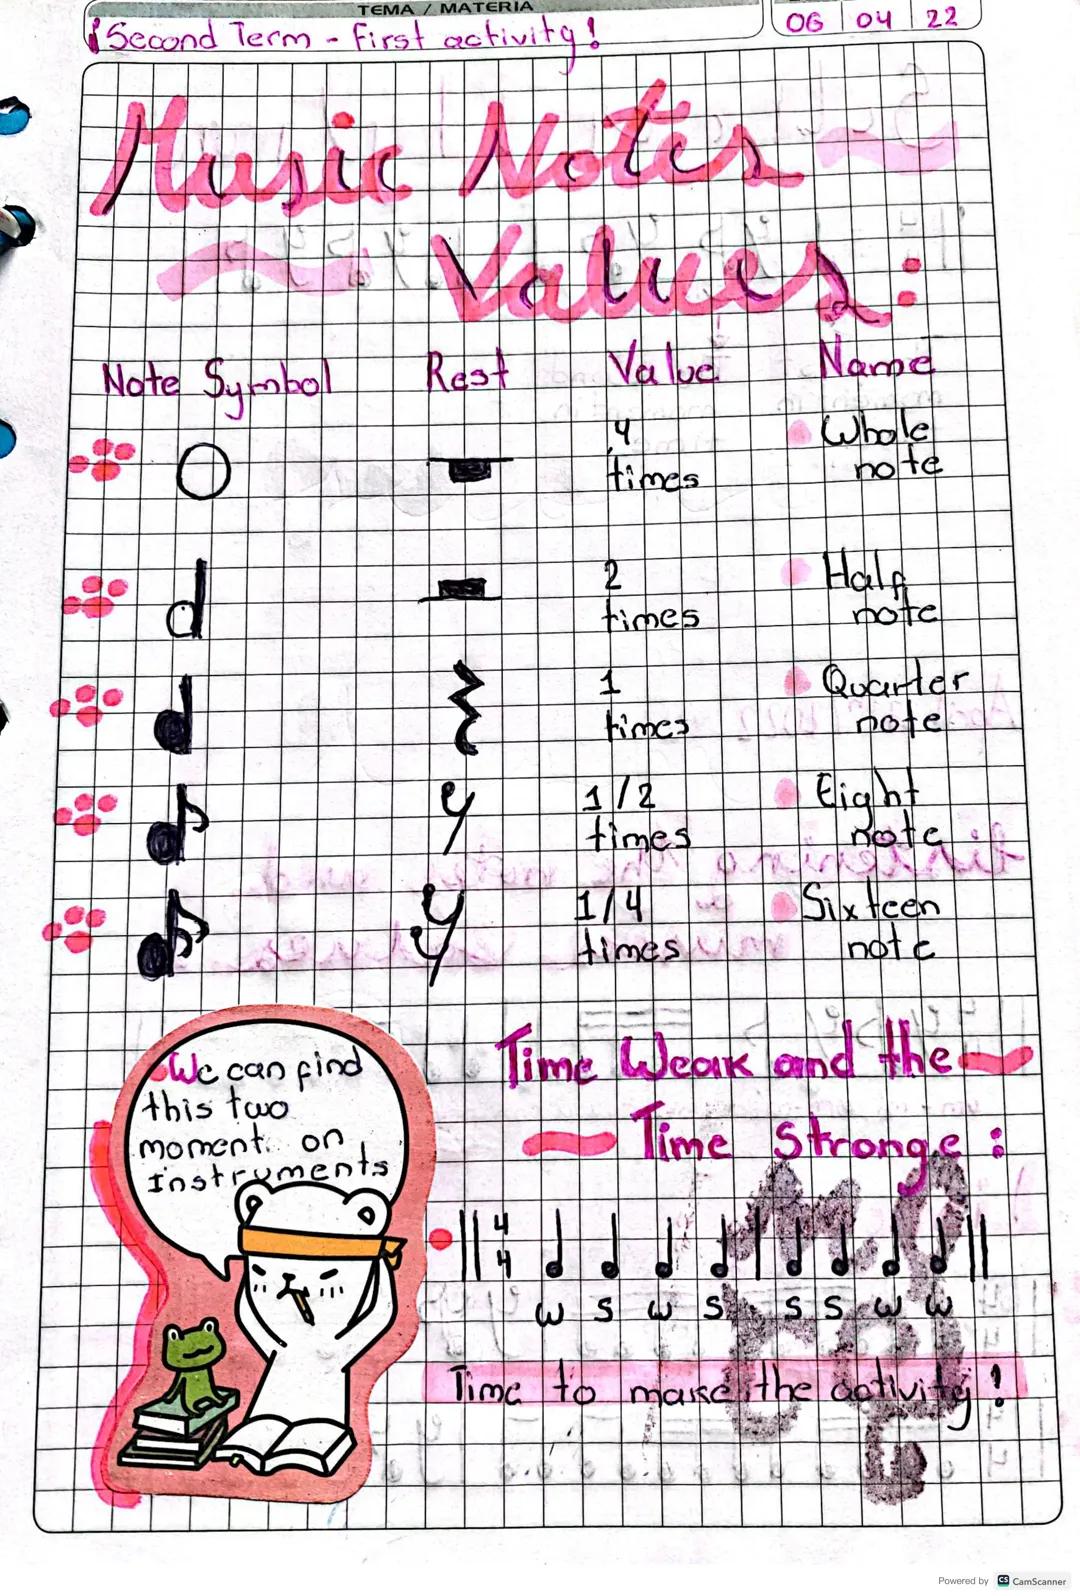 TEMA / MATERIA
¡Second Term - First activity!
06 04 22
Music Notes
Values:
Note Symbol Rest Value Name
4 times Whole note
2 times Half note
1 times Quarter note
1/2 times Eight note
1/4 times Sixteen note
We can find
this two
moment on
Instruments
Time Weak and the
Time Stronge:
4
4
W S W S S S W W
Time to make the activity!
Powered by CS CamScanner